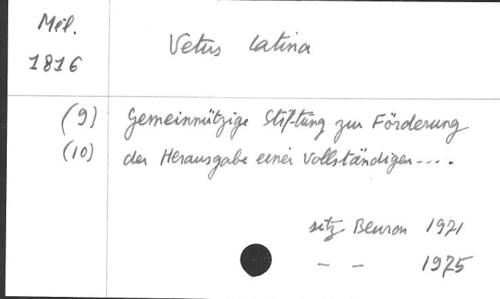 Mél. Vetus Latina
1816
(9) Gemeinnützige Stiftung zur Förderung
(10) der Herausgabe einer Vollständigen ....
sitz Beuron 1971
— — 1975